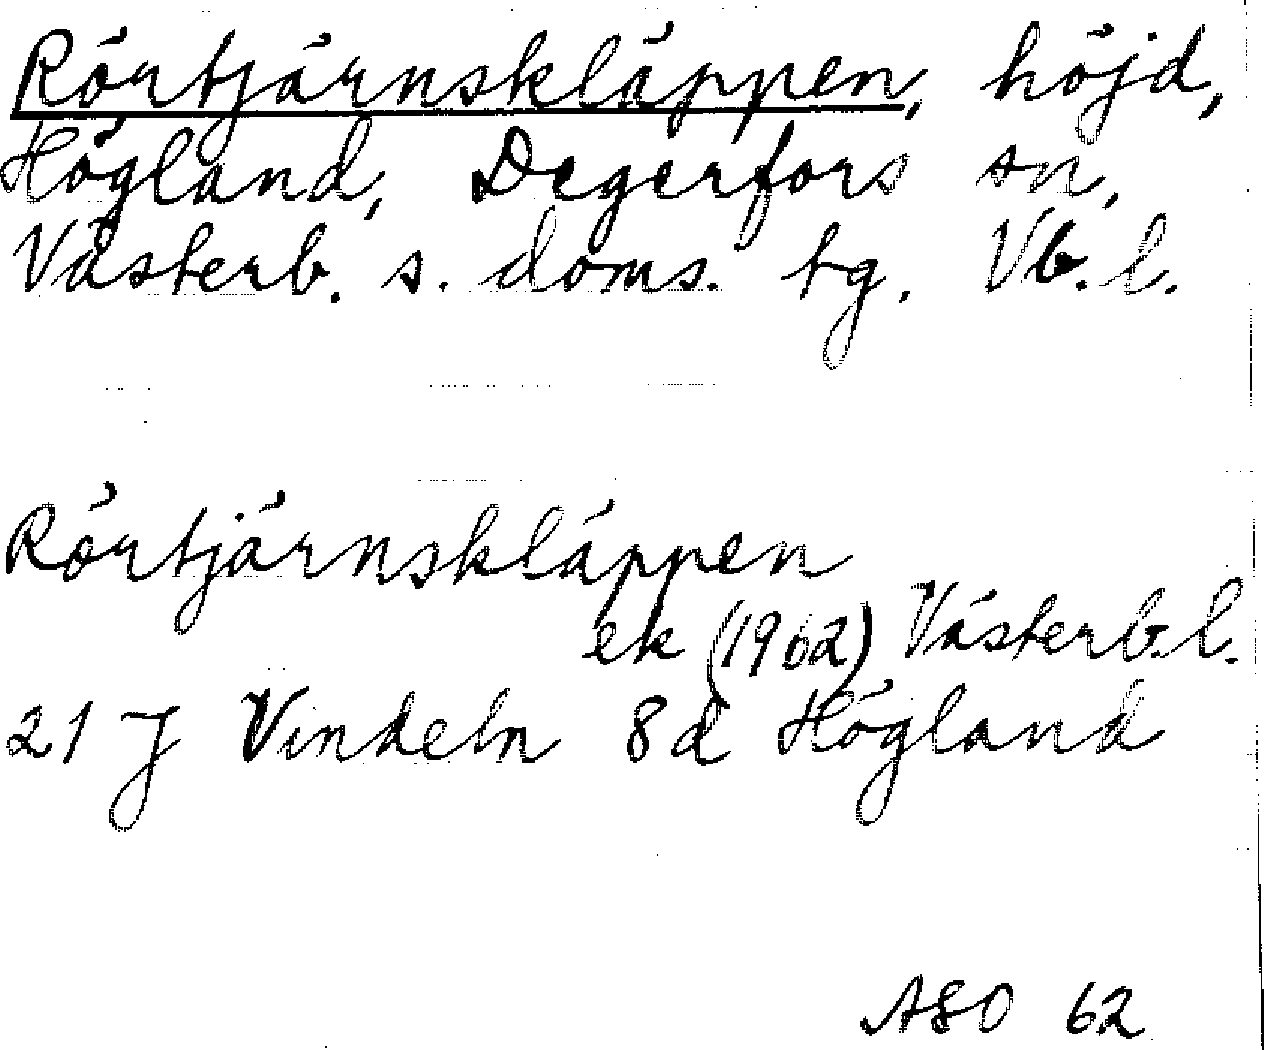 Rörtjärnskläppen, höjd,
Högland, Degerfors sn,
Västerb. s. doms. tg. Vb. l.
Rörtjärnskläppen
ek (1962) Västerb. l.
21 J Vindeln 8d Högland
ASO 62